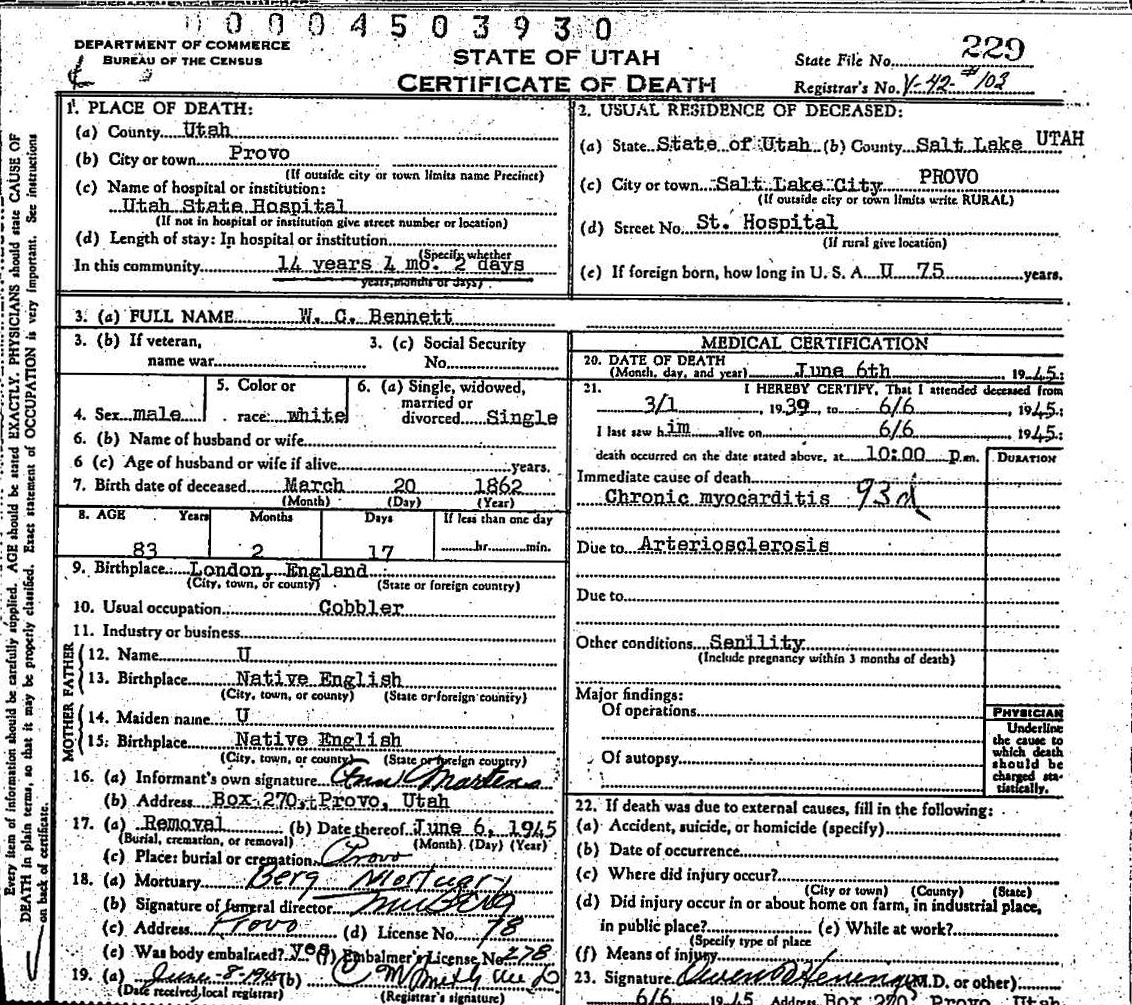 00004503930
DEPARTMENT OF COMMERCE
BUREAU OF THE CENSUS
STATE OF UTAH
CERTIFICATE OF DEATH
State File No. 229
Registrar's No. V-42 #103
Every item of information should be carefully supplied. AGE should be stated EXACTLY. PHYSICIANS should state CAUSE OF
DEATH in plain terms, so that it may be properly classified. Exact statement of OCCUPATION is very important. See instructions
on back of certificate.
1. PLACE OF DEATH:
(a) County Utah
(b) City or town Provo
(If outside city or town limits name Precinct)
(c) Name of hospital or institution:
Utah State Hospital
(If not in hospital or institution give street number or location)
(d) Length of stay: In hospital or institution
(Specify whether
In this community 14 years 4 mo. 2 days
years, months or days)
2. USUAL RESIDENCE OF DECEASED:
(a) State State of Utah (b) County Salt Lake UTAH
(c) City or town Salt Lake City PROVO
(If outside city or town limits write RURAL)
(d) Street No. St. Hospital
(If rural give location)
(e) If foreign born, how long in U. S. A. U 75 years.
3. (a) FULL NAME W. C. Bennett
3. (b) If veteran,
name war
3. (c) Social Security
No.
4. Sex male
5. Color or
race white
6. (a) Single, widowed,
married or
divorced Single
6. (b) Name of husband or wife
6 (c) Age of husband or wife if alive years.
7. Birth date of deceased March 20 1862
(Month) (Day) (Year)
8. AGE Years Months Days If less than one day
83 2 17 hr. min.
9. Birthplace London, England
(City, town, or county) (State or foreign country)
10. Usual occupation Cobbler
11. Industry or business
FATHER
12. Name U
13. Birthplace Native English
(City, town, or county) (State or foreign country)
MOTHER
14. Maiden name U
15. Birthplace Native English
(City, town, or county) (State or foreign country)
16. (a) Informant's own signature Ann Martens
(b) Address Box 270, Provo, Utah
17. (a) Removal (b) Date thereof June 6, 1945
(Burial, cremation, or removal) (Month) (Day) (Year)
(c) Place: burial or cremation Provo
18. (a) Mortuary Berg Mortuary
(b) Signature of funeral director
(c) Address Provo (d) License No. 78
(e) Was body embalmed? yes (f) Embalmer's License No. 278
19. (a) June-8-1945 (b)
(Date received local registrar) (Registrar's signature)
MEDICAL CERTIFICATION
20. DATE OF DEATH
(Month, day, and year) June 6th 1945:
21. I HEREBY CERTIFY, That I attended deceased from
3/1, 1939, to 6/6 1945:
I last saw him alive on 6/6 1945:
death occurred on the date stated above, at 10:00 p.m.
DURATION
Immediate cause of death
Chronic myocarditis 93d
Due to Arteriosclerosis
Due to
Other conditions Senility
(Include pregnancy within 3 months of death)
Major findings:
Of operations
Of autopsy
PHYSICIAN
Underline
the cause to
which death
should be
charged sta-
tistically.
22. If death was due to external causes, fill in the following:
(a) Accident, suicide, or homicide (specify)
(b) Date of occurrence
(c) Where did injury occur?
(City or town) (County) (State)
(d) Did injury occur in or about home on farm, in industrial place,
in public place? (e) While at work?
(Specify type of place
(f) Means of injury
23. Signature Owen P. Heninger (M.D. or other)
6/6 1945 Address Box 270 Provo Utah